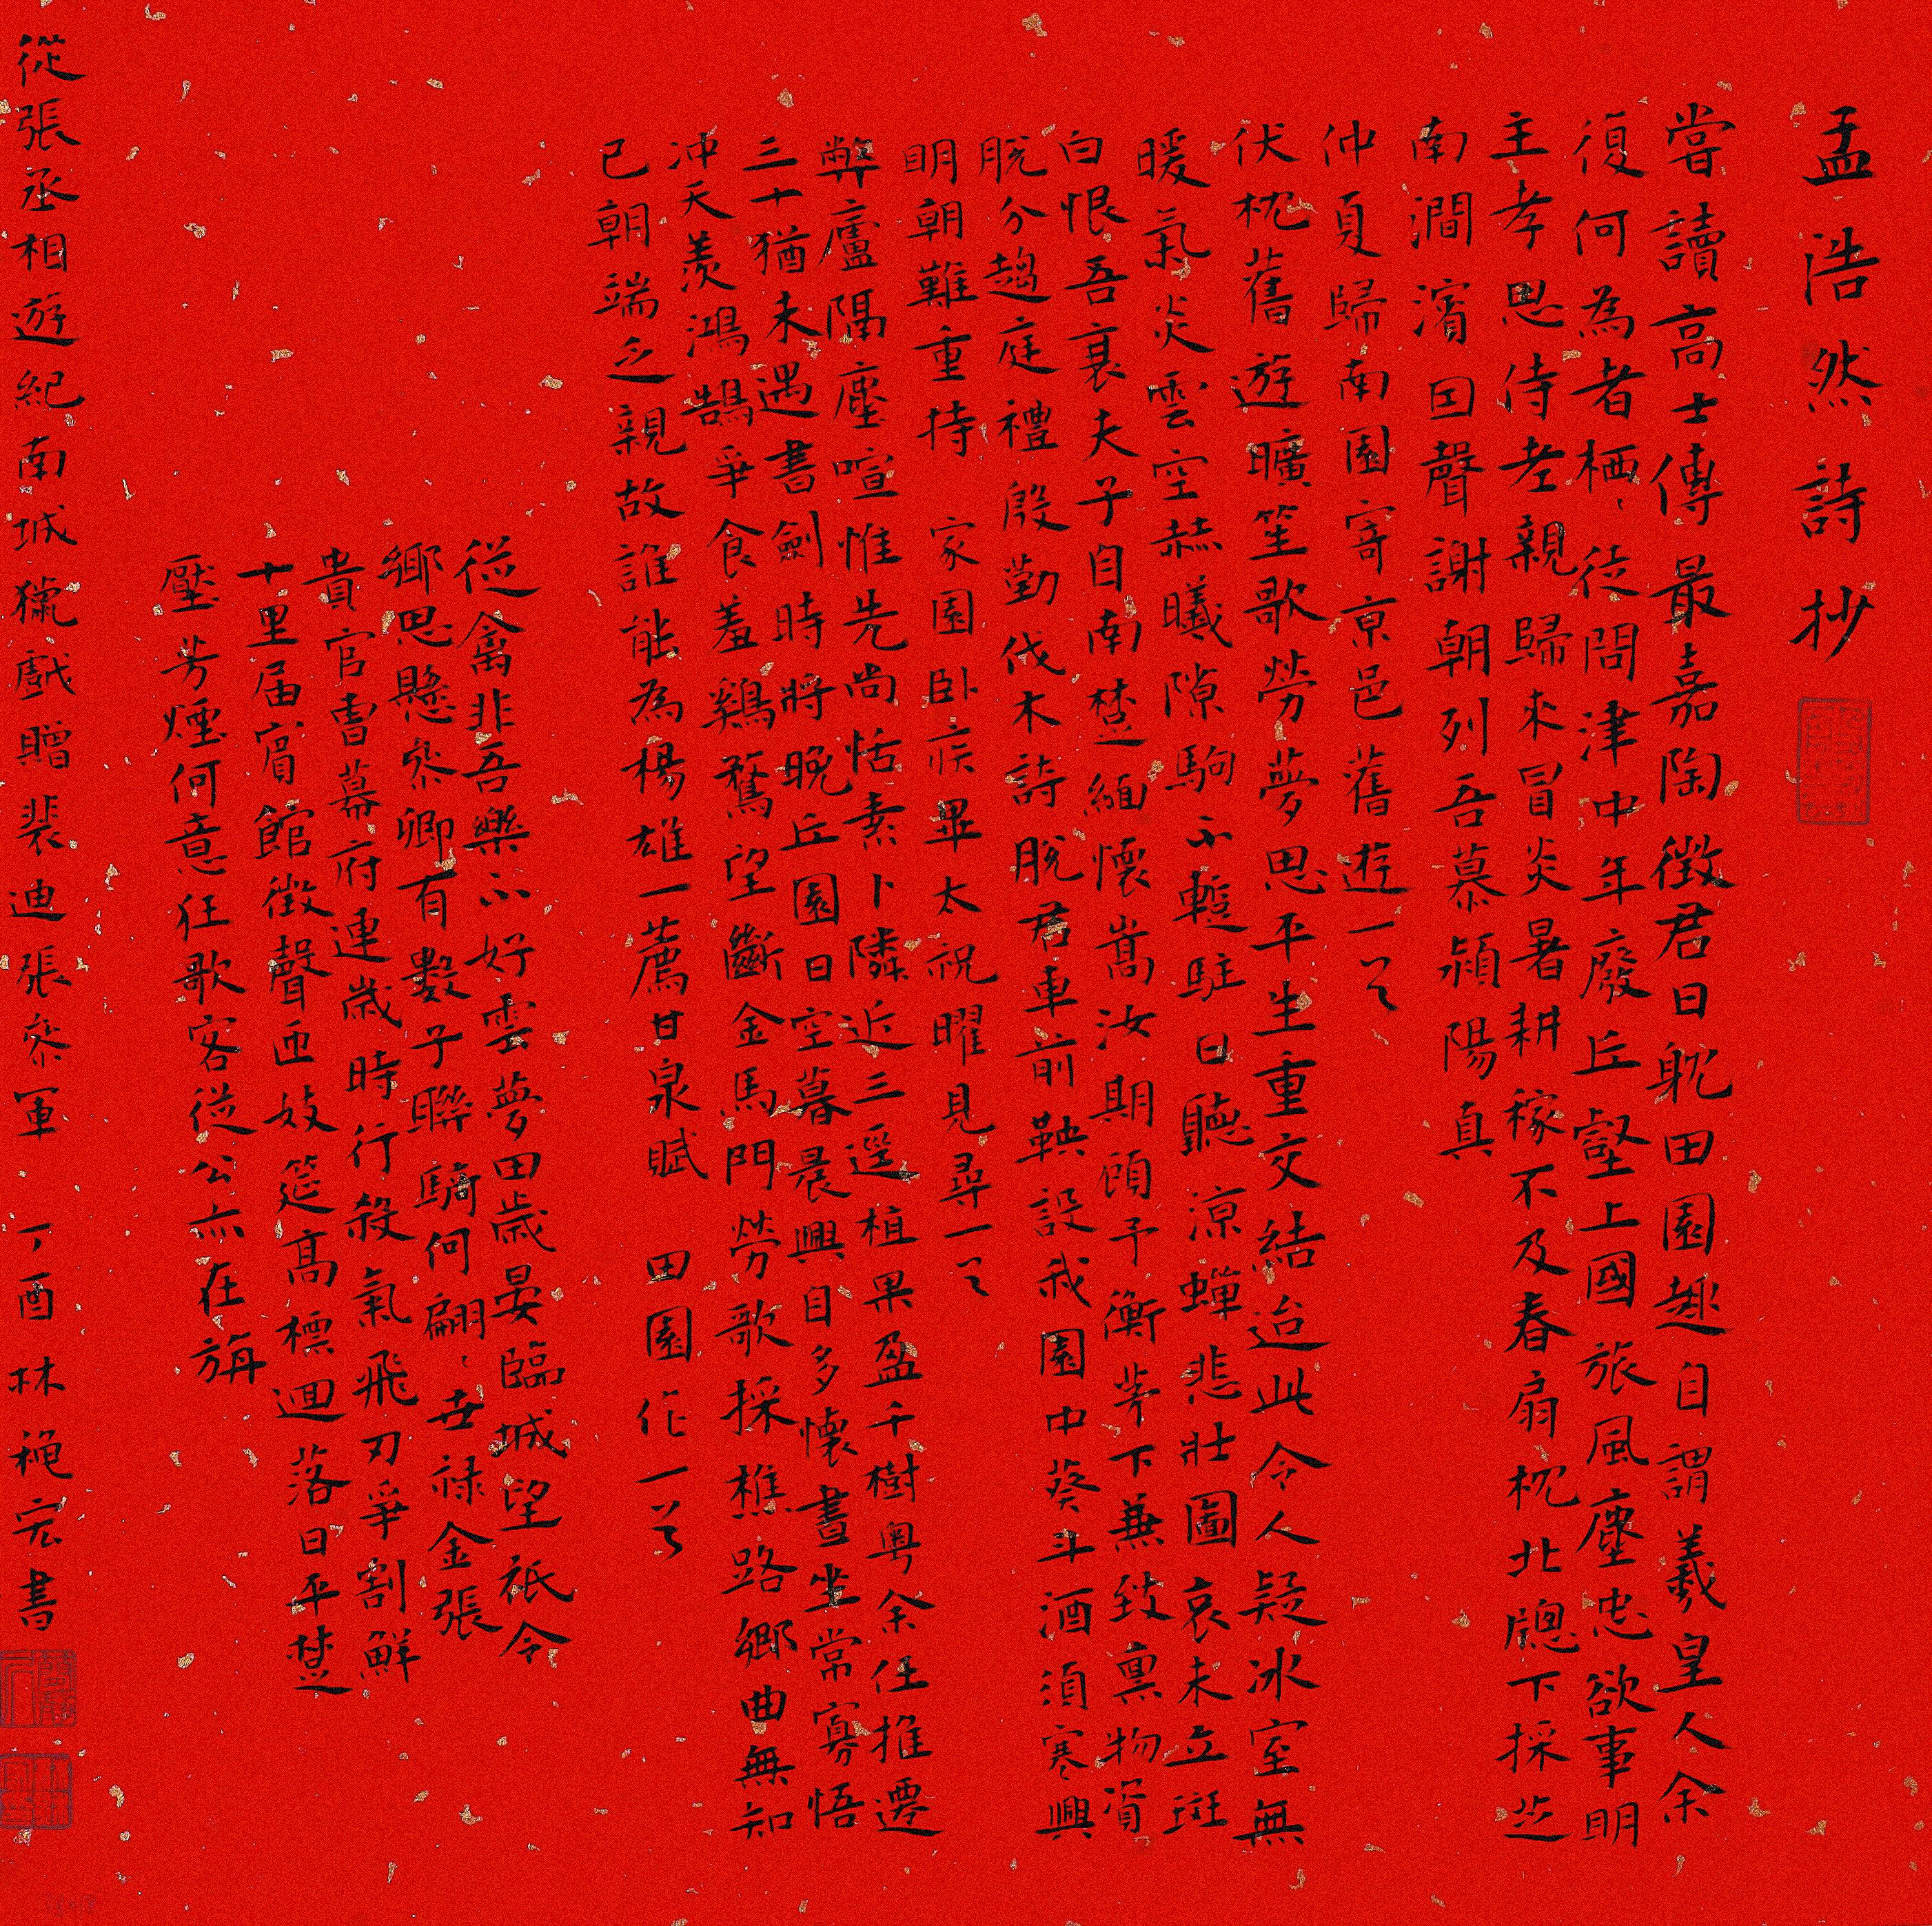 孟浩然詩抄
嘗讀高士傳最嘉陶徵君日躭田園趣自謂羲皇人余
復何為者栖、徒問津中年廢丘壑上國旅風塵忠欲事明
主孝思侍老親歸來冒炎暑耕稼不及春扇枕北牕下採芝
南澗濱回聲謝朝列吾慕潁陽真
仲夏歸南園寄京邑舊遊一首
伏枕舊遊曠笙歌勞夢思平生重交結迨此令人疑冰室無
暖氣炎雲空赫曦隙駒不暫駐日聽涼蟬悲壯圖哀未立斑
白恨吾衰夫子自南楚緬懷嵩汝期顧予衡茅下兼致稟物資
脫分趨庭禮殷勤伐木詩脫君車前鞅設我園中葵斗酒須寒興
明朝難重持 家園卧疾畢太祝曜見尋一首
弊廬隔塵喧惟先尚恬素卜隣近三逕植果盈千樹粵余任推遷
三十猶未遇書劍時將晚丘園日空暮晨興自多懷晝坐常寡悟
沖天羨鴻鵠爭食羞鷄鶩望斷金馬門勞歌採樵路鄉曲無知
已朝端乏親故誰能為楊雄一薦甘泉賦 田園作一首
從禽非吾樂不好雲夢田歲晏臨城望祇令
鄉思懸參卿有數子聯騎何翩、世祿金張
貴官曹幕府連歲時行殺氣飛刃爭割鮮
十里届賓館徵聲匝妓筵高標迴落日平楚
壓芳煙何意狂歌客從公亦在旃
從張丞相遊紀南城獵戲贈裴迪張參軍 丁酉林宏書